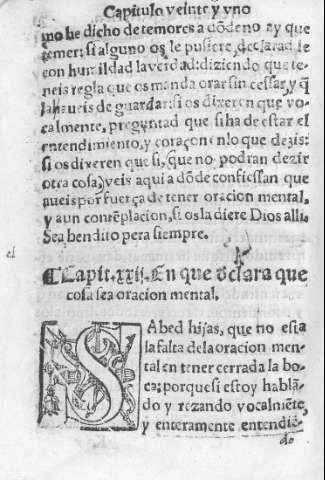 Capitulo veinte y vno
mo he dicho de temores a dõde no ay que
temer: si alguno os le pusiere, declarad le
con humildad la verdad: diziendo que te-
neis regla que os manda orar sin cessar, y q̃
la haueis de guardar: si os dixeren que vo-
calmente, preguntad que si ha de estar el
entendimiento, y coraçon en lo que dezis:
si os dixeren que si, (que no podran dezir
otra cosa) veis aqui a dõde confiessan que
aueis por fuerça de tener oracion mental,
y aun contẽplacion, si os la diere Dios alli.
Sea bendito pera siempre.
el
Capit. xxij. En que declara que
cosa sea oracion mental.
SAbed hijas, que no esta
la falta de la oracion men-
tal en tener cerrada la bo-
ca; porque si estoy hablã-
do y rezando vocalmẽte,
y enteramente entendiẽ-
do